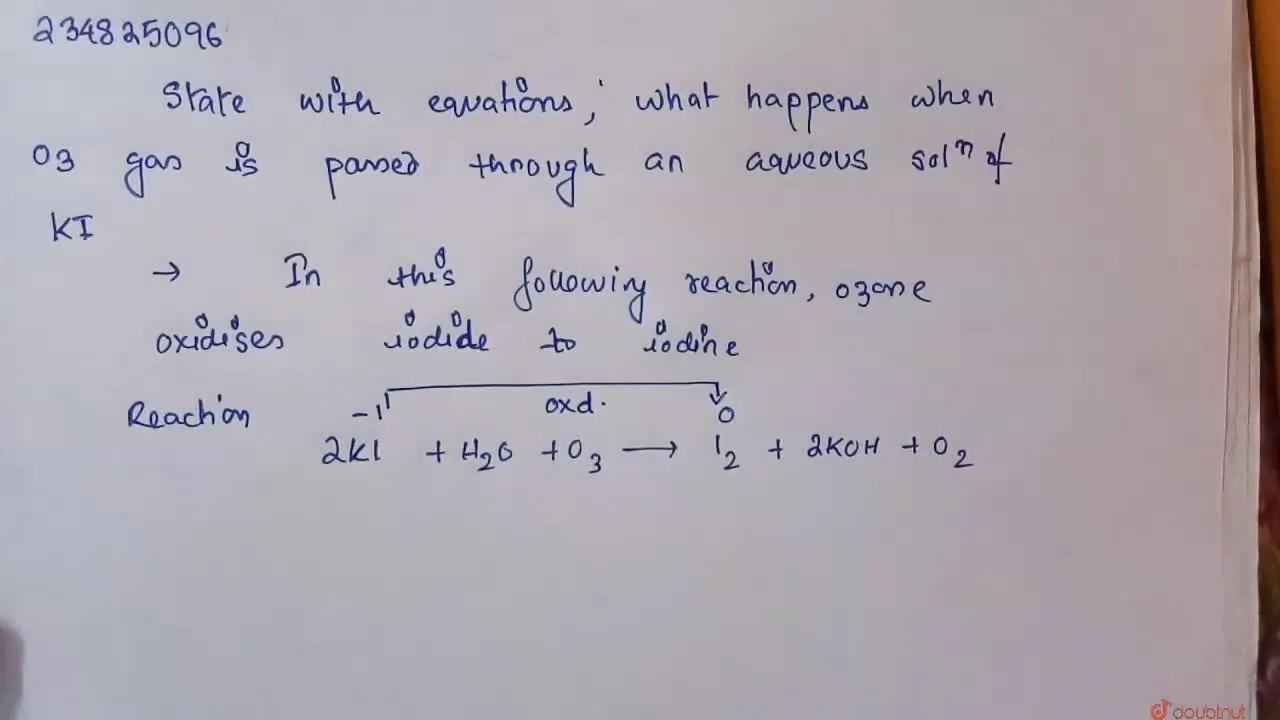 234825096
State with equations, what happens when
O3 gas is passed through an aqueous solⁿ of
KI
→ In this following reaction, ozone
oxidises iodide to iodine
-1 oxd. 0
Reaction
2KI + H₂O + O₃ → I₂ + 2KOH + O₂
doubtnut